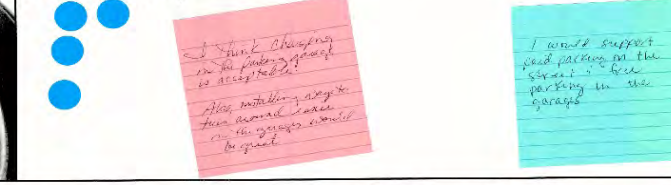 I think charging
in the parking garage
is acceptable.
Also, installing ways to
turn around
in the garages would
be great
I would support
paid parking on the
street if free
parking in the
garages